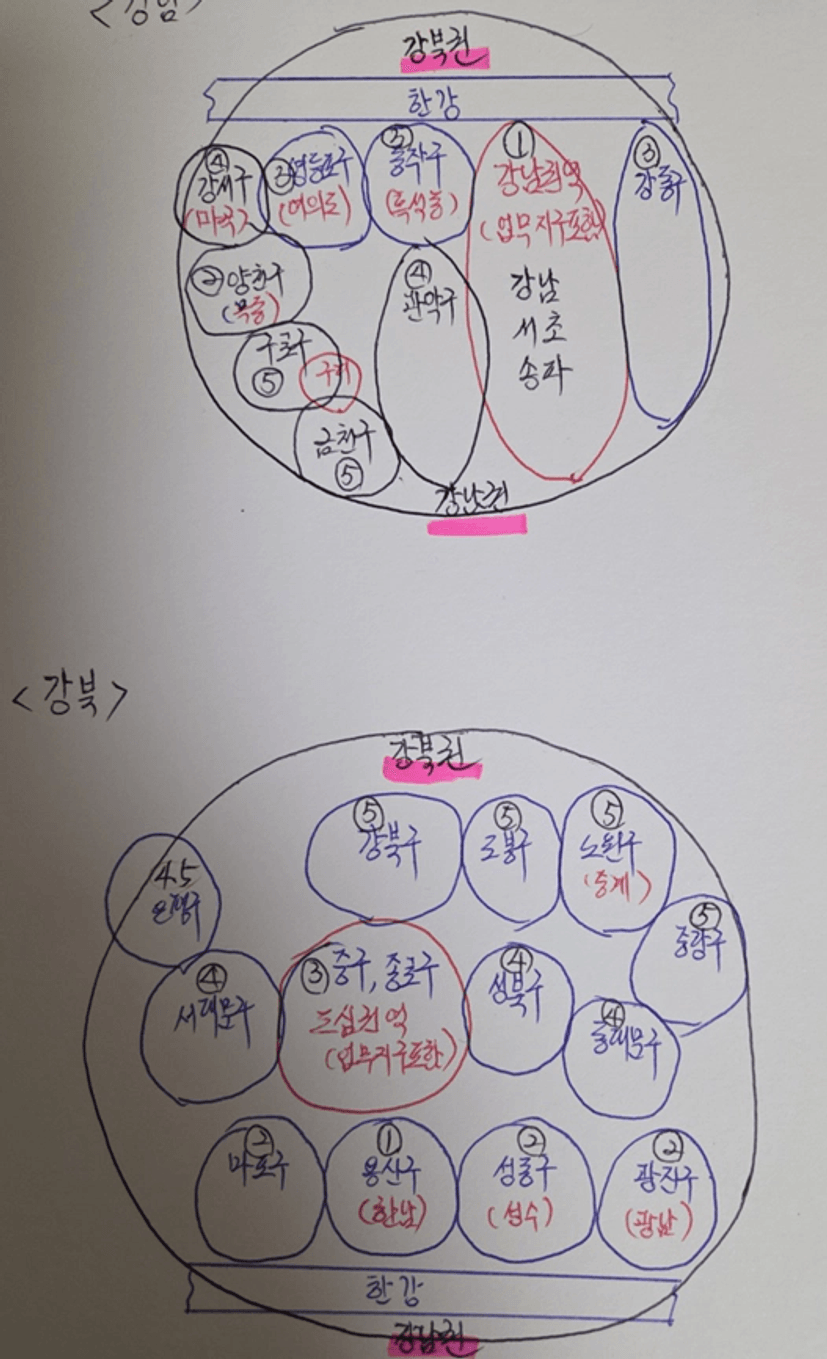 <강남>
강북권
한강
④
강서구
(마곡)
③영등포구
(여의도)
③
동작구
(흑석동)
①
강남권역
(업무지구포함)
강남
서초
송파
③
강동구
②양천구
(목동)
④
관악구
구로구
⑤
금천구
⑤
강남권
<강북>
강북권
⑤
강북구
⑤
도봉구
⑤
노원구
(중계)
4.5
은평구
⑤
중랑구
④
서대문구
③중구, 종로구
도심권역
(업무지구포함)
④
성북구
④
동대문구
②
마포구
①
용산구
(한남)
②
성동구
(성수)
②
광진구
(광남)
한강
강남권